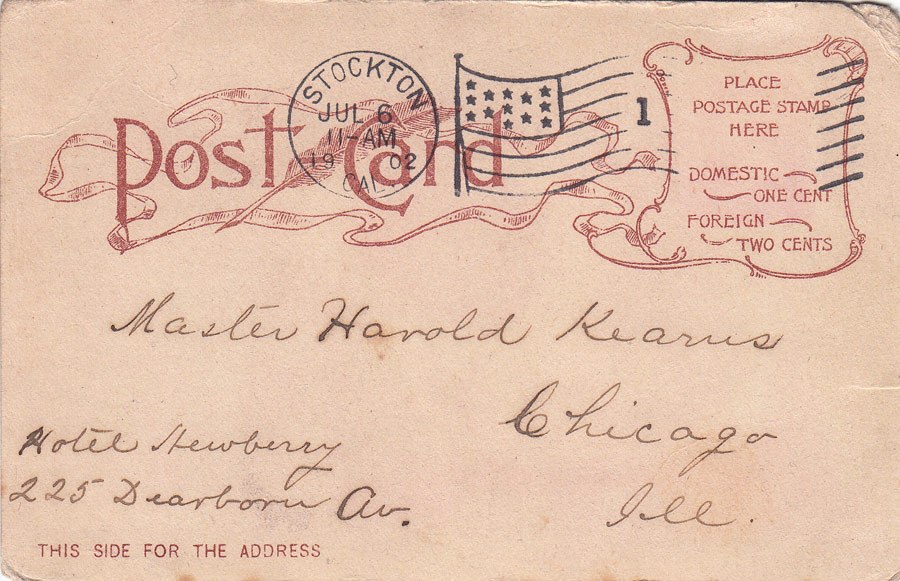 Post Card
STOCKTON
JUL 6
11-AM
19 02
CAL.
1
PLACE
POSTAGE STAMP
HERE
DOMESTIC
ONE CENT
FOREIGN
TWO CENTS
Master Harold Kearns
Chicago
Ill.
Hotel Newberry
225 Dearborn Av.
THIS SIDE FOR THE ADDRESS